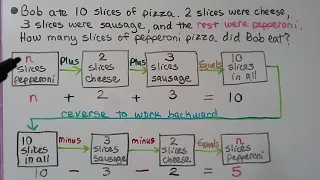 Bob ate 10 slices of pizza. 2 slices were cheese,
3 slices were sausage, and the rest were pepperoni.
How many slices of pepperoni pizza did Bob eat?
n slices pepperoni Plus 2 slices cheese Plus 3 slices sausage Equals 10 slices in all
n + 2 + 3 = 10
reverse to work backward
10 slices in all minus 3 slices sausage minus 2 slices cheese Equals n slices pepperoni
10 - 3 - 2 = 5